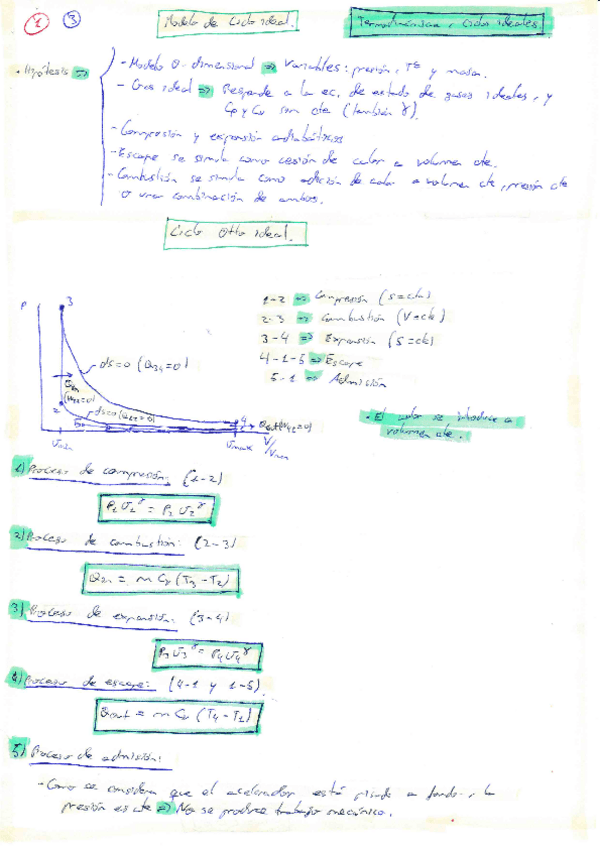 1 3 Modelo de Ciclo ideal. Termodinámica, Ciclos ideales
· Hipótesis ⇒
- Modelo 0-dimensional ⇒ Variables: presión, Tª y masa.
- Gas ideal ⇒ Responde a la ec. de estado de gases ideales, y
Cp y Cv son cte (también γ).
- Compresión y expansión adiabáticas
- Escape se simula como cesión de calor a volumen cte.
- Combustión se simula como adición de calor a volumen cte, presión cte
o una combinación de ambos.
Ciclo Otto ideal.
1-2 ⇒ Compresión (s=cte)
2-3 ⇒ Combustión (V=cte)
3-4 ⇒ Expansión (s=cte)
4-1-5 ⇒ Escape
5-1 ⇒ Admisión
P
3
ds=0 (Q34=0)
2
4
Vmin
Vmax
· El calor se introduce a
volumen cte.
1) Proceso de compresión: (1-2)
P1 V1^γ = P2 V2^γ
2) Proceso de combustión: (2-3)
Qin = m Cv (T3-T2)
3) Proceso de expansión: (3-4)
P3 V3^γ = P4 V4^γ
4) Proceso de escape: (4-1 y 1-5).
Qout = m Cv (T4-T1)
5) Proceso de admisión:
- Como se considera que el acelerador está pisado a fondo, la
presión es cte ⇒ No se produce trabajo mecánico.